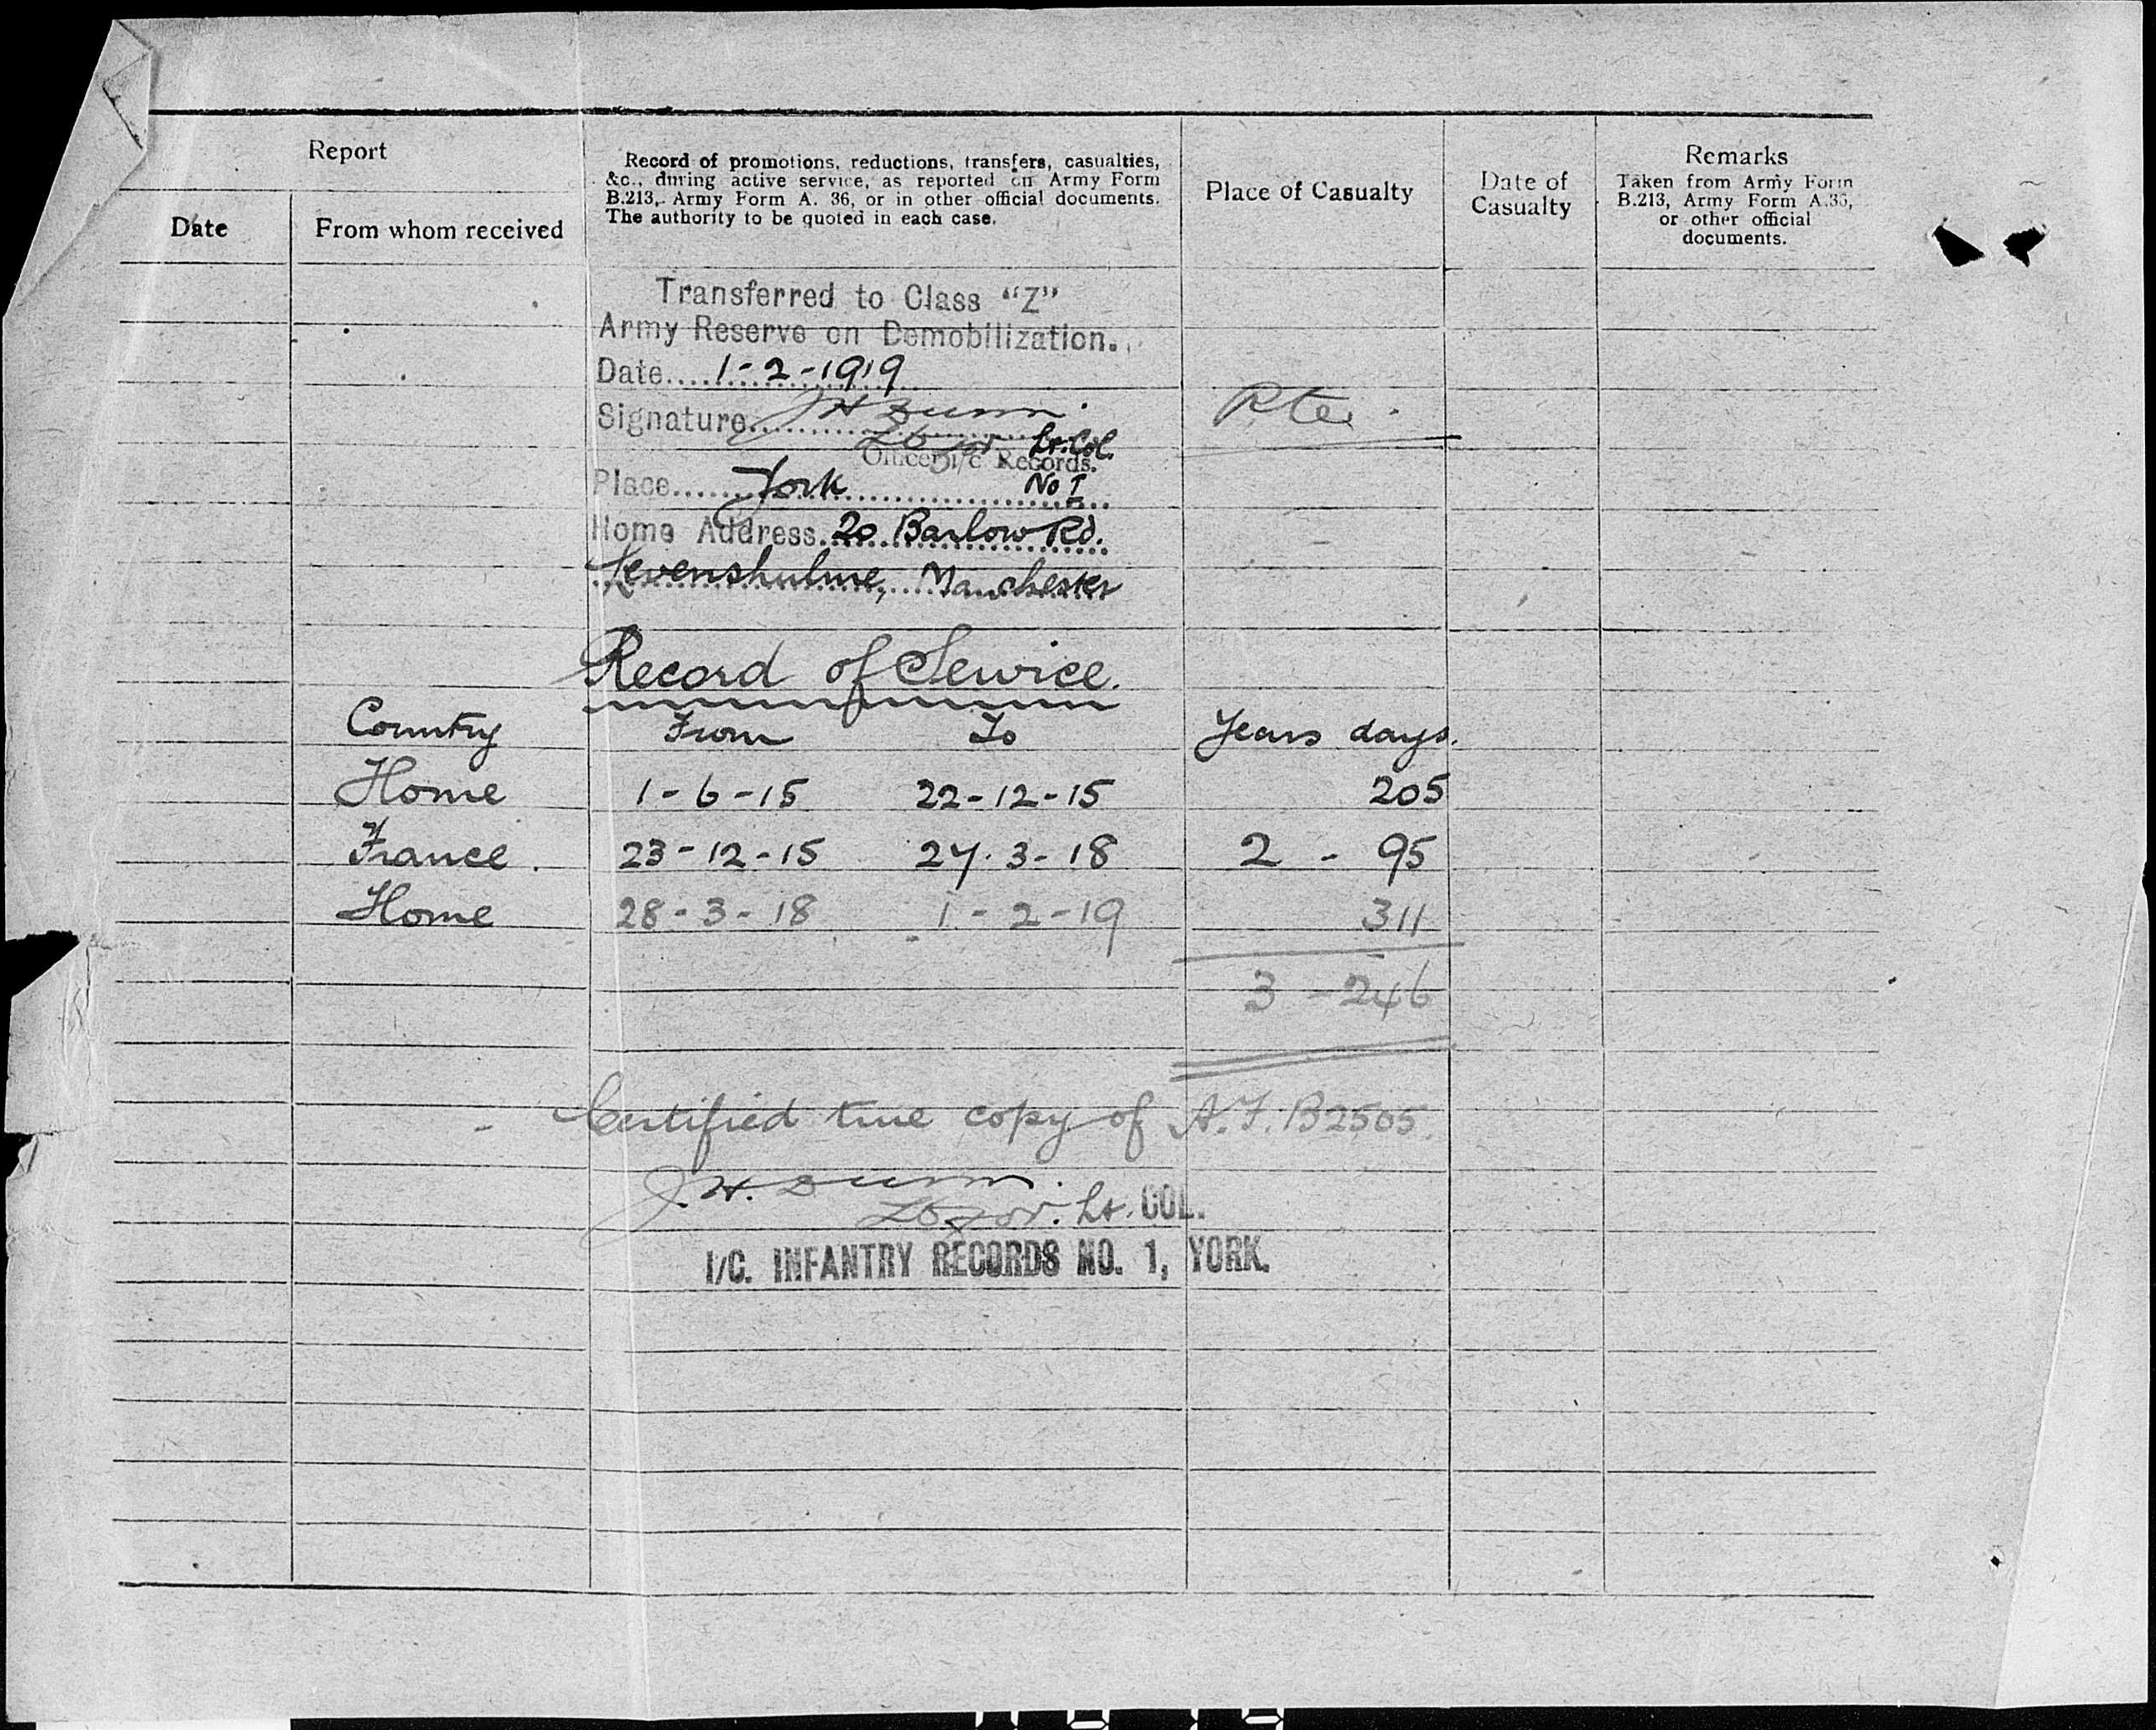 Report
Date
From whom received
Record of promotions, reductions, transfers, casualties,
&c., during active service, as reported on Army Form
B.213, Army Form A. 36, or in other official documents.
The authority to be quoted in each case.
Place of Casualty
Date of
Casualty
Remarks
Taken from Army Form
B.213, Army Form A.36,
or other official
documents.
Transferred to Class “Z”
Army Reserve on Demobilization.
Date....1-2-1919
Signature J H Dunn. Pte.
Lt for Lt. Col.
Officer i/c Records.
Place......York No I
Home Address. 20 Barlow Rd.
Levenshulme, Manchester
Record of Service.
Country From To Years days.
Home 1-6-15 22-12-15 205
France. 23-12-15 27.3-18 2 - 95
Home 28-3-18 1-2-19 311
3 - 246
Certified true copy of A.F. B2505.
J. H. Dunn.
Lt for. Lt. COL.
I/C. INFANTRY RECORDS NO. 1, YORK.